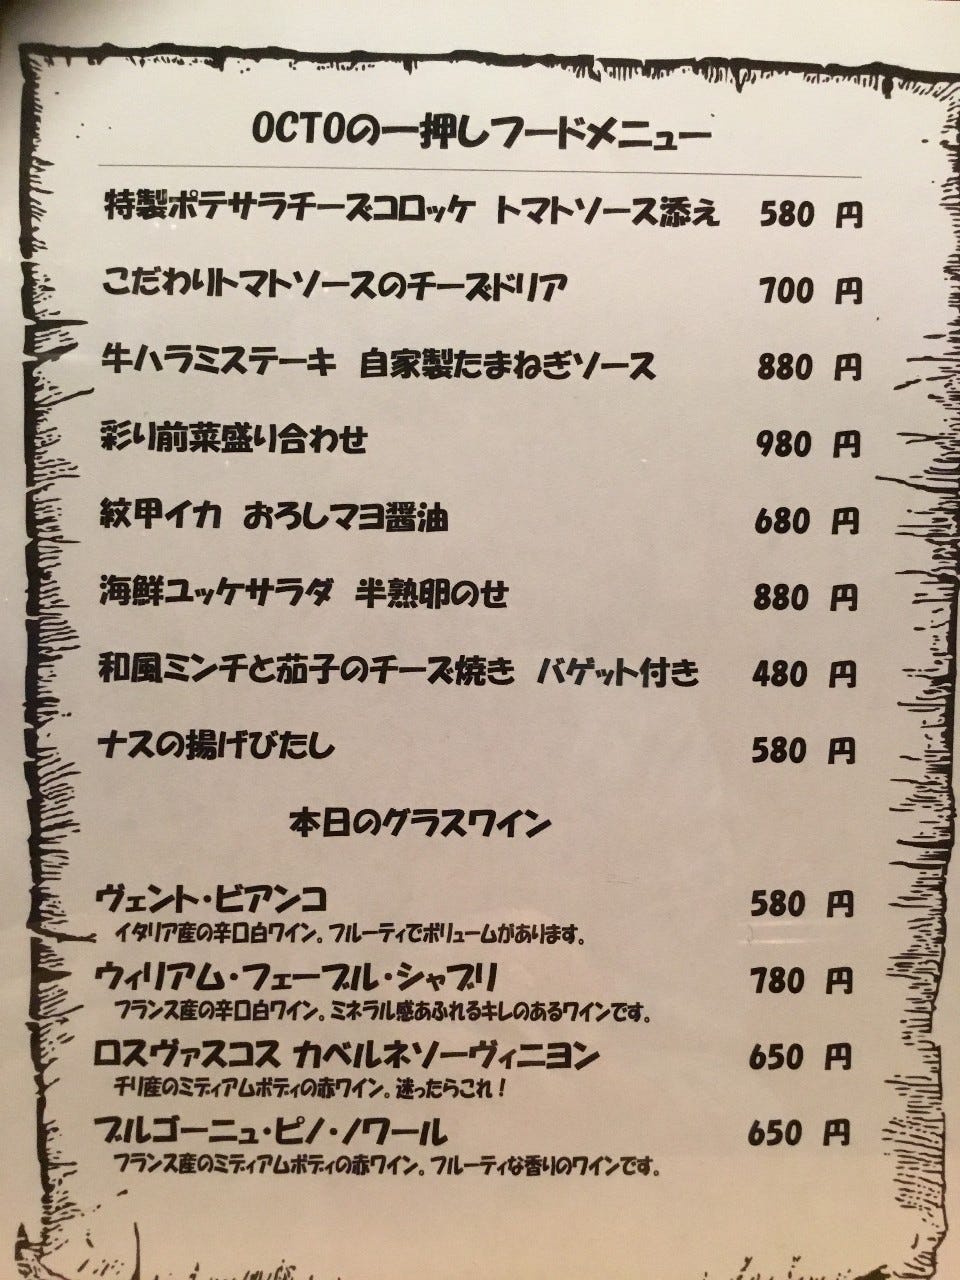 OCTOの一押しフードメニュー
特製ポテサラチーズコロッケ トマトソース添え 580 円
こだわりトマトソースのチーズドリア 700 円
牛ハラミステーキ 自家製たまねぎソース 880 円
彩り前菜盛り合わせ 980 円
紋甲イカ おろしマヨ醤油 680 円
海鮮ユッケサラダ 半熟卵のせ 880 円
和風ミンチと茄子のチーズ焼き バゲット付き 480 円
ナスの揚げびたし 580 円
本日のグラスワイン
ヴェント・ビアンコ 580 円
イタリア産の辛口白ワイン。フルーティでボリュームがあります。
ウィリアム・フェーブル・シャブリ 780 円
フランス産の辛口白ワイン。ミネラル感あふれるキレのあるワインです。
ロスヴァスコス カベルネソーヴィニヨン 650 円
チリ産のミディアムボディの赤ワイン。迷ったらこれ！
ブルゴーニュ・ピノ・ノワール 650 円
フランス産のミディアムボディの赤ワイン。フルーティな香りのワインです。